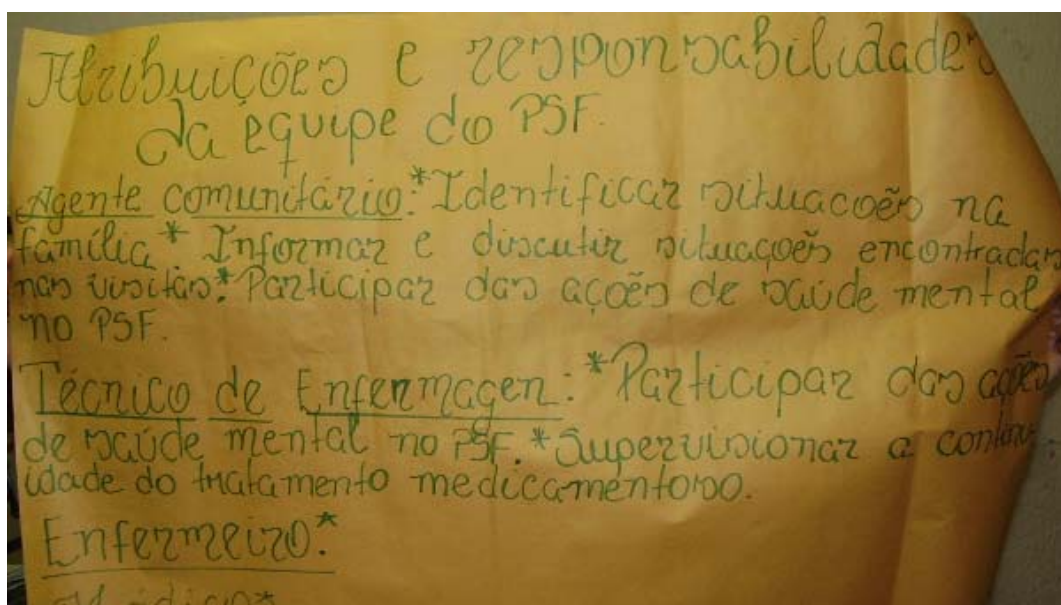 Atribuições e responsabilidades
da equipe do PSF.
Agente comunitário:*Identificar situacoẽs na
família* Informar e discutir situaçoẽs encontradas
nas visitas.*Participar das açoẽs de saúde mental
no PSF.
Técnico de Enfermagen:*Participar das açoẽs
de saúde mental no PSF.*Supervisionar a continu-
idade do tratamento medicamentoso.
Enfermeiro:*
Médico*